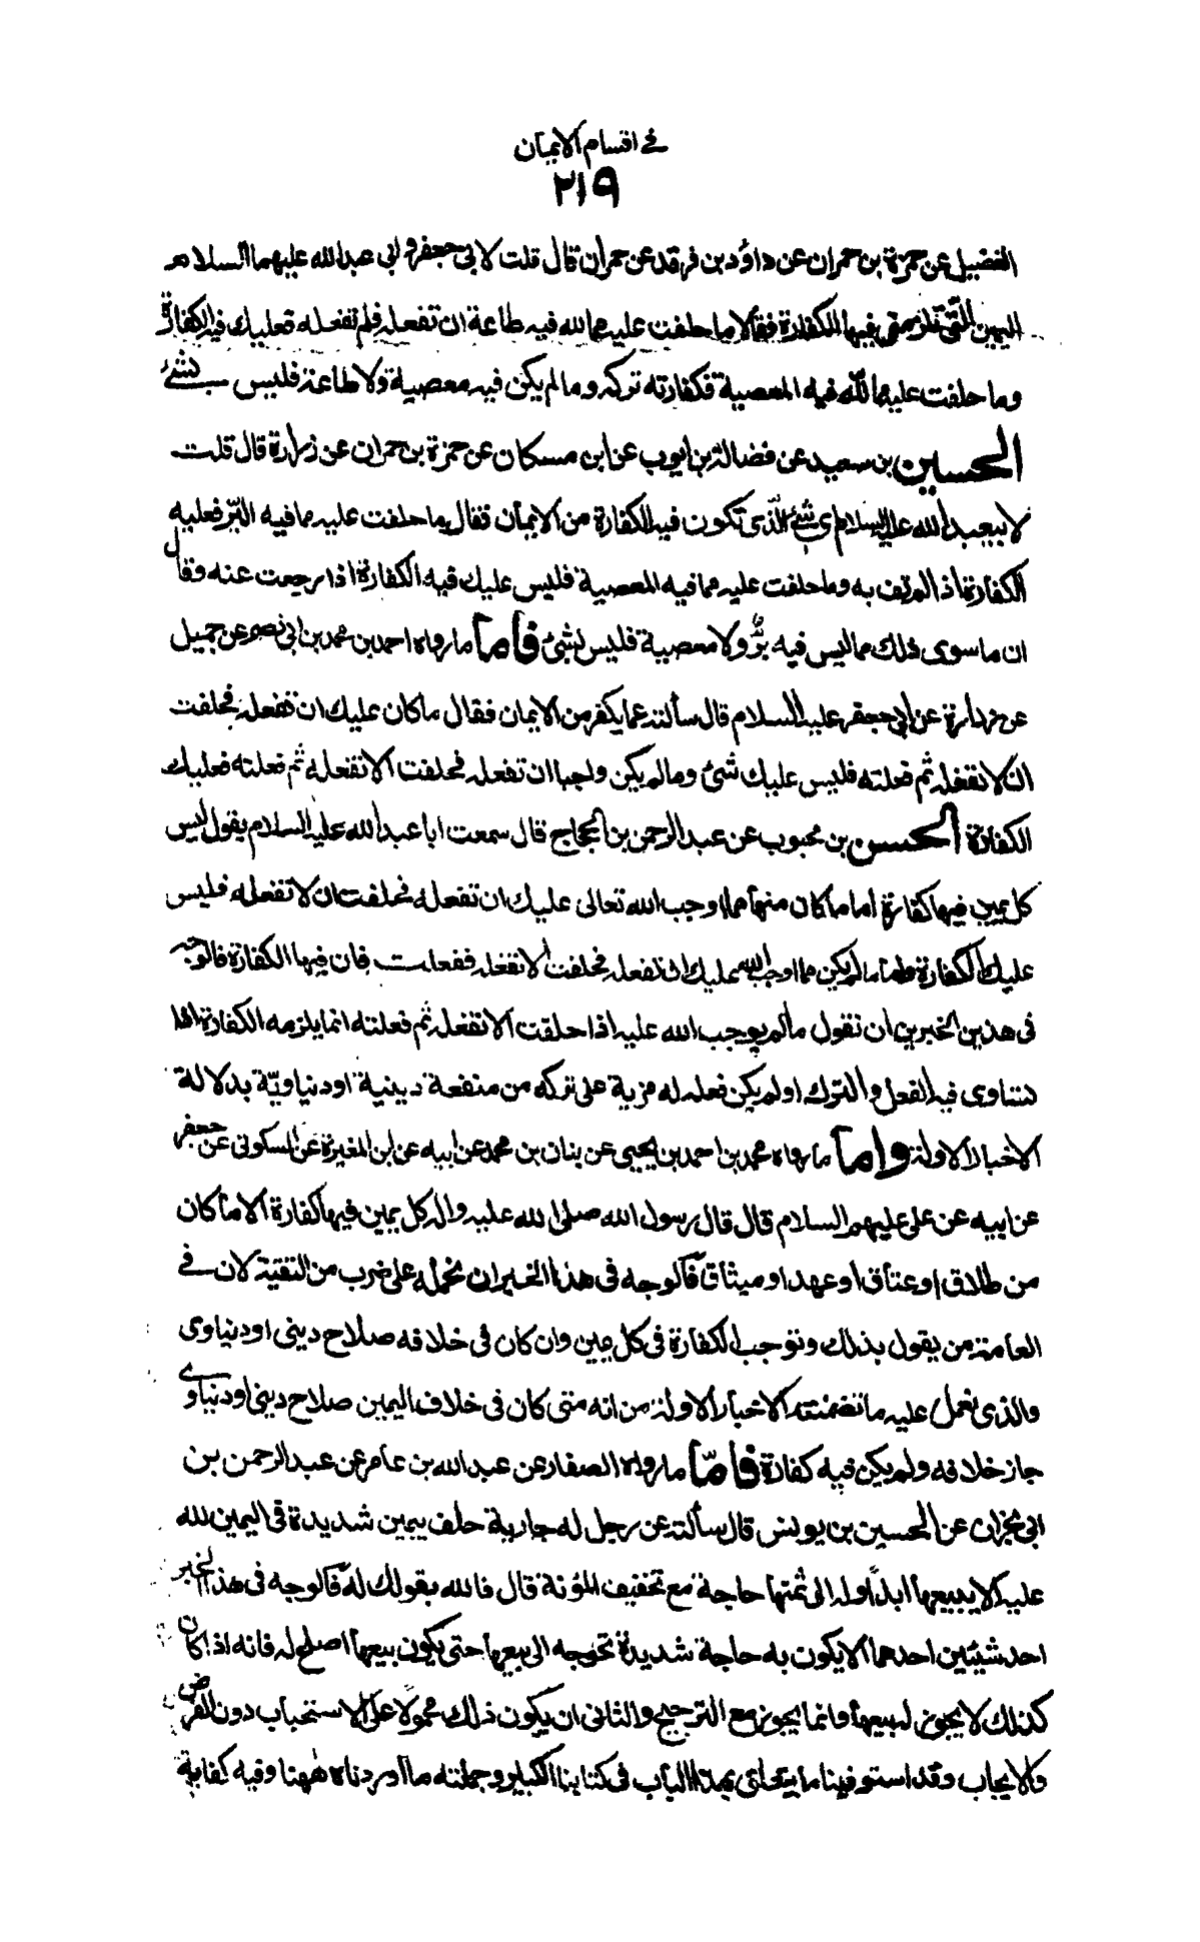 في اقسام الايمان
٢١٩
الفضيل عن حمزة بن حمران عن داؤد بن فرقد عن حمران قال قلت لابي جعفر و ابي عبدالله عليهما السلام
اليمين التي تلزمني فيها الكفارة فقالا ما حلفت عليه مما لله فيه طاعة ان تفعله فلم تفعله فعليك فيه الكفارة
وما حلفت عليه مما لله فيه المعصية فكفارته تركه وما لم يكن فيه معصية ولا طاعة فليس بشئ
الحسين بن سعيد عن فضالة بن ايوب عن ابن مسكان عن حمزة بن حمران عن زرارة قال قلت
لابيعبدالله عليه السلام اي شئ الذي تكون فيه الكفارة من الايمان فقال ما حلفت عليه مما فيه البّر فعليه
الكفارة اذا لم تف به وما حلفت عليه مما فيه المعصية فليس عليك فيه الكفارة اذا رجعت عنه وقال
ان ما سوى ذلك مما ليس فيه برّ ولا معصية فليس بشئ فاما ما رواه احمد بن محمد بن ابي نصر عن جميل
عن زرارة عن ابي جعفر عليه السلام قال سألته عما يكفر من الايمان فقال ما كان عليك ان تفعله فحلفت
ان لا تفعله ثم فعلته فليس عليك شئ وما لم يكن واجبا ان تفعله فحلفت الا تفعله ثم فعلته فعليك
الكفارة الحسن بن محبوب عن عبد الرحمن بن الحجاج قال سمعت ابا عبد الله عليه السلام يقول ليس
كل يمين فيها كفارة اما ما كان منها مما اوجب الله تعالى عليك ان تفعله فحلفت ان لا تفعله فليس
عليك الكفارة واما ما لم يكن مما اوجب الله عليك ان تفعله فحلفت الا تفعله ففعلت فان فيها الكفارة فالوجه
في هذين الخبرين ان نقول ما لم يوجب الله عليه اذا حلفت الا تفعله ثم فعلته انما يلزمه الكفارة اذا
تساوى فيه الفعل والترك او لم يكن فعله له مزية على تركه من منفعة دينية او دنياويّة بدلالة
الاخبار الاولة واما ما رواه محمد بن احمد بن يحيى عن بنان بن محمد عن ابيه عن ابن المغيرة عن السكوني عن جعفر
عن ابيه عن علي عليهم السلام قال قال رسول الله صلى الله عليه واله كل يمين فيها كفارة الا ما كان
من طلاق او عتاق او عهد او ميثاق فالوجه في هذا الخبر ان نحمله على ضرب من التقية لان في
العامة من يقول بذلك ونوجب الكفارة في كل يمين وان كان في خلافه صلاح ديني او دنياوى
والذى نعمل عليه ما تضمنته الاخبار الاولة من انه متى كان في خلاف اليمين صلاح ديني او دنياوي
جاز خلافه ولم يكن فيه كفارة فامّا ما رواه الصفار عن عبد الله بن عامر عن عبد الرحمن بن
ابي نجران عن الحسين بن يونس قال سألته عن رجل له جارية حلف بيمين شديدة في اليمين لله
عليه الا يبيعها ابدا وله الى ثمنها حاجة مع تخفيف المؤنة قال فا لله بقولك له فالوجه في هذا الخبر
احد شيئين احدهما الا يكون به حاجة شديدة تحوجه الى بيعها حتى يكون بيعها اصلح له فانه اذا كان
كذلك لا يجوز له بيعها وانما يجوز مع الترجيح والثاني ان يكون ذلك محمولا على الاستحباب دون الفرض
والايجاب وقد استوفينا ما يتعلق بهذا الباب في كتابنا الكبير وجملته ما اوردناه ههنا وفيه كفاية